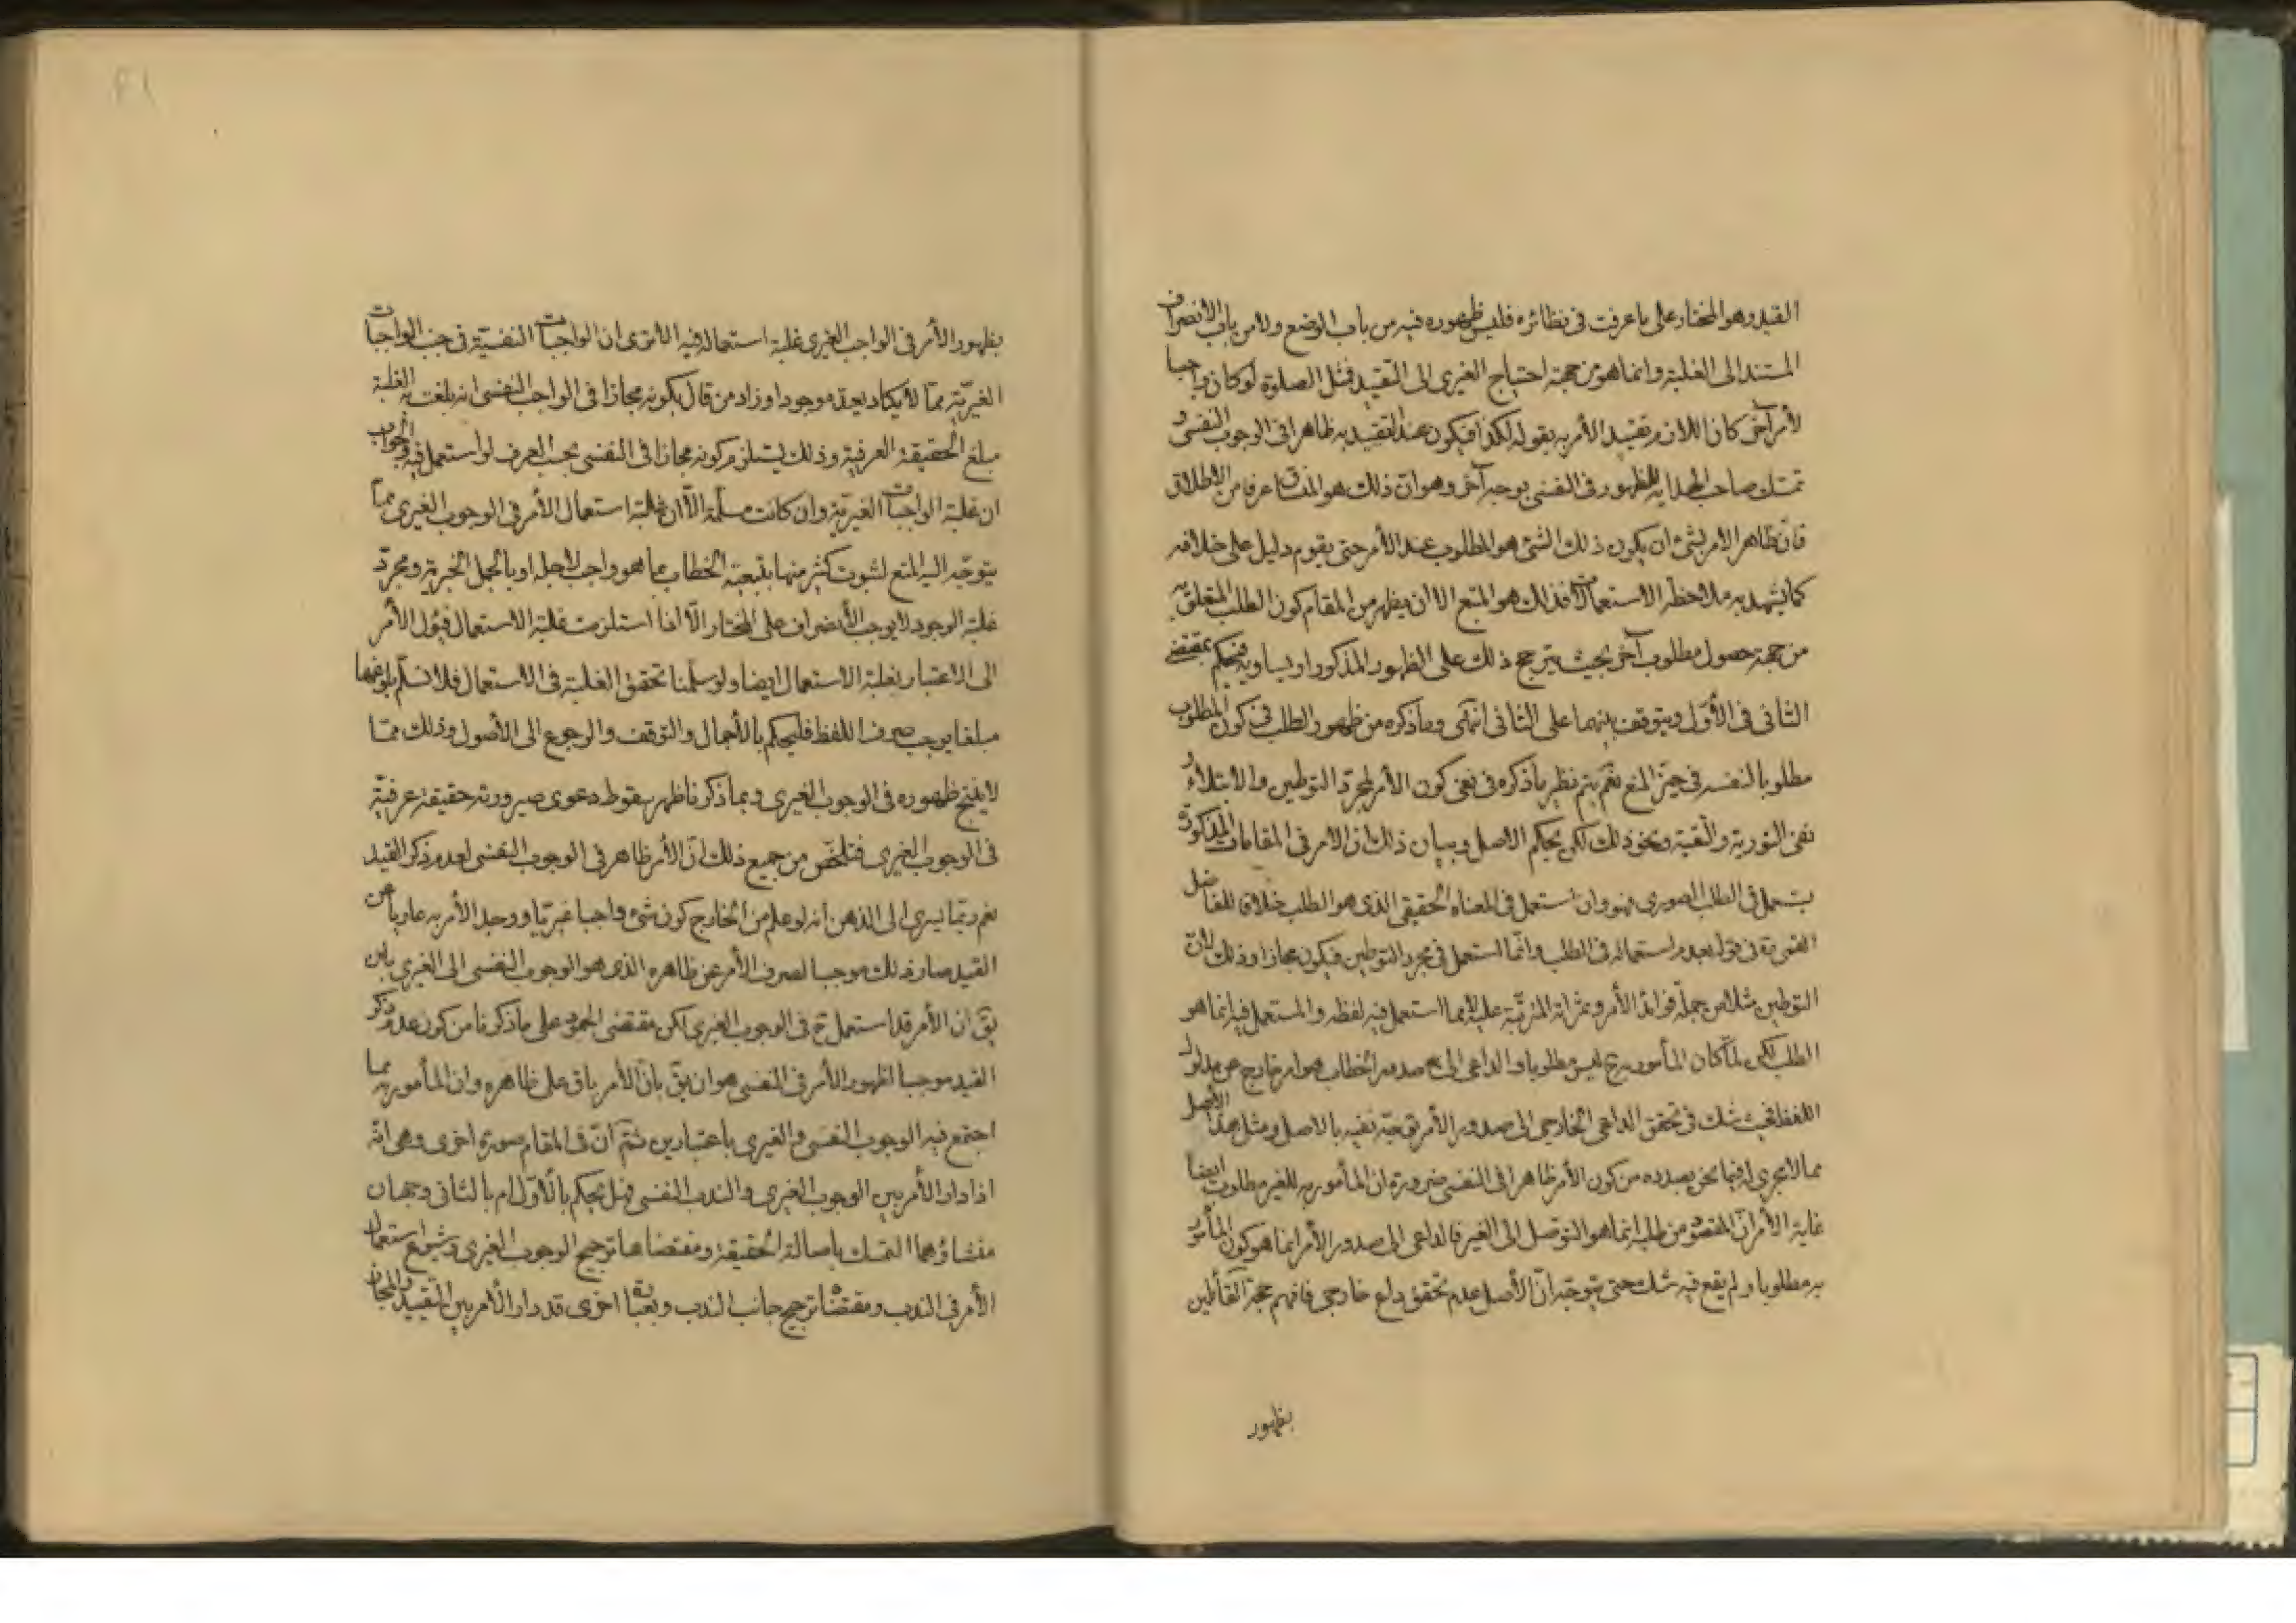 القيد وهو المختار على ما عرفت فى نظائره فليس ظهوره فيه من باب الوضع ولا من باب الانصراف
المستند الى الغلبة وانما هو من جهة احتياج الغيرى الى التقييد فمثل الصلوة لو كان واجبا
لأمر آخر كان اللازم تقييد الأمر به بقوله لكذا فيكون عند التقييد به ظاهرا فى الوجوب النفسى و
تمسك صاحب الهداية للظهور فى النفسى بوجه آخر وهو ان ذلك هو المنساق عرفا من الاطلاق
فان ظاهر الأمر بشئ ان يكون ذلك الشئ هو المطلوب عند الأمر حتى يقوم دليل على خلافه
كما يشهد به ملاحظة الاستعمالات فذلك هو المتبع الا ان يظهر من المقام كون الطلب المتعلق به
من جهة حصول مطلوب آخر بحيث يترجح ذلك على الظهور المذكور او يساويه فيحكم بمقتضى
الثانى فى الأوّل ويتوقف بينهما على الثانى انتهى وما ذكره من ظهور الطلب فى كون المطلوب
مطلوبا لنفسه فى حيّز المنع نعم يتم نظير ما ذكره فى نفى كون الأمر لمجرّد التوطين والابتلاء و
نفى التورية والتقية ونحو ذلك لكن بحكم الاصل وبيان ذلك ان الامر فى المقامات المذكورة
يستعمل فى الطلب الصورى فهو وان استعمل فى معناه الحقيقى الذى هو الطلب خلافا للفاضل
القمى ره فى قوله بعدم استعماله فى الطلب وانما استعمل فى مجرد التوطين فيكون مجازا وذلك لانّ
التوطين مثلا من جملة فوائد الأمر وثمراته المترتّبة عليه لا مما استعمل فيه لفظه والمستعمل فيه انما هو
الطلب لكن لمّا كان المأمور به ح ليس مطلوبا والداعى الى صدور الخطاب هو امر خارج عن مدلول
اللفظ فحيث شك فى تحقق الداعى الخارجى الى صدور الأمر يتوجّه نفيه بالاصل ومثل هذا الأصل
مما لا يجرى فيما نحن بصدده من كون الأمر ظاهرا فى النفسى ضرورة ان المأمور به للغير مطلوب ايضا
غاية الأمر انّ المقصود من طلبه انما هو التوصل الى الغير فالداعى الى صدور الأمر انما هو كون المأمور
به مطلوبا ولم يقع فيه شك حتى يتوجّه انّ الأصل عدم تحقق داع خارجى فافهم حجة القائلين
بظهور
بظهور الأمر فى الواجب الغيرى غلبة استعماله فيه الا ترى ان الواجبات النفسيّة فى جنب الواجبات
الغيريّة ممّا لا يكاد يعدّ موجودا وزاد من قال بكونه مجازا فى الواجب النفسى انه بلغت به الغلبة
مبلغ الحقيقة العرفية وذلك يستلزم كونه مجازا فى النفسى بحسب العرف لو استعمل فيه والجواب
ان غلبة الواجبات الغيريّة وان كانت مسلّمة الّا ان غلبة استعمال الأمر فى الوجوب الغيرى ممّا
يتوجّه اليه المنع لثبوت كثير منها بتبعية الخطاب بما هو واجب لاجله او بالجمل الخبرية ومجرّد
غلبة الوجود لا يوجب الأنصراف على المختار الّا اذا استلزمت غلبة الاستعمال فيؤل الأمر
الى الاعتبار بغلبة الاستعمال ايضا ولو سلّمنا تحقق الغلبة فى الاستعمال فلا نسلّم بلوغها
مبلغا يوجب صرف اللفظ فليحكم بالأجمال والتوقف والرجوع الى الأصول وذلك ممّا
لا ينتج ظهوره فى الوجوب الغيرى وبما ذكرنا ظهر سقوط دعوى صيرورته حقيقة عرفيّة
فى الوجوب الغيرى فتلخّص من جميع ذلك انّ الأمر ظاهر فى الوجوب النفسى لعدم ذكر القيد
نعم ربّما يسرى الى الذهن انه لو علم من الخارج كون شئ واجبا غيريّا ووجد الأمر به عاريا عن
القيد صار ذلك موجبا لصرف الأمر عن ظاهره الذى هو الوجوب النفسى الى الغيرى بان
يقّ ان الأمر قد استعمل ح فى الوجوب الغيرى لكن مقتضى الجمود على ما ذكرنا من كون عدم ذكر
القيد موجبا لظهور الأمر فى النفسى هو ان يقّ بانّ الأمر باق على ظاهره وان المأمور به مما
اجتمع فيه الوجوب النفسى والغيرى باعتبارين ثمّ انّ فى المقام صورة اخرى وهى انّه
اذا دار الأمر بين الوجوب الغيرى والندب النفسى فهل يحكم بالأوّل ام بالثانى وجهان
منشاؤهما التمسك باصالة الحقيقة ومقتضاها ترجيح الوجوب الغيرى وشيوع استعمال
الأمر فى الندب ومقتضاه ترجيح جانب الندب وبعبارة اخرى قد دار الأمر بين التقييد والمجاز